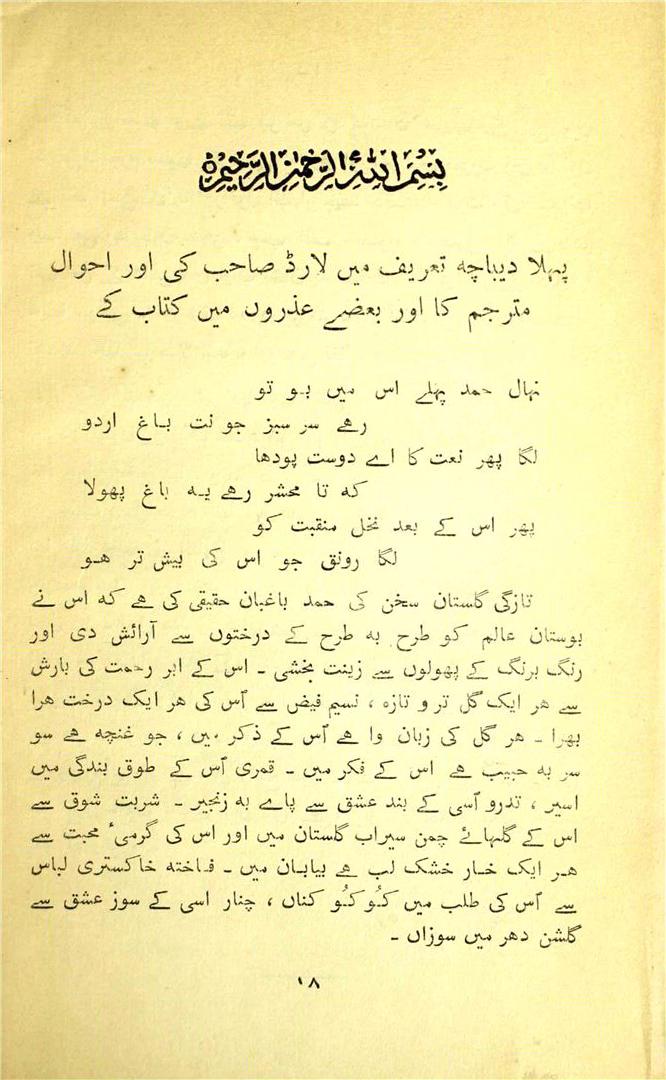 بسم اللہ الرحمٰن الرحیم
پہلا دیباچہ تعریف میں لارڈ صاحب کی اور احوال
مترجم کا اور بعضے عذروں میں کتاب کے
نہال حمد پہلے اس میں بو تو
رھے سر سبز جو نت باغ اردو
لگا پھر نعت کا اے دوست پودھا
کہ تا محشر رھے یہ باغ پھولا
پھر اس کے بعد نخل منقبت کو
لگا رونق جو اس کی بیش تر ھو
تازگی گلستان سخن کی حمد باغبان حقیقی کی ھے کہ اس نے
بوستان عالم کو طرح بہ طرح کے درختوں سے آرائش دی اور
رنگ برنگ کے پھولوں سے زینت بخشی ۔ اس کے ابر رحمت کی بارش
سے ھر ایک گل تر و تازہ ، نسیم فیض سے اُس کی ھر ایک درخت ھرا
بھرا ۔ ھر گل کی زبان وا ھے اُس کے ذکر میں ، جو غنچہ ھے سو
سر بہ جیب ھے اس کے فکر میں ۔ قمری اُس کے طوق بندگی میں
اسیر ، تدرو اُسی کے بند عشق سے پاے بہ زنجیر ۔ شربت شوق سے
اس کے گلہائے چمن سیراب گلستان میں اور اس کی گرمیٔ محبت سے
ھر ایک خار خشک لب ھے بیابان میں ۔ فاختہ خاکستری لباس
سے اُس کی طلب میں کُو کُو کناں ، چنار اسی کے سوز عشق سے
گلشن دھر میں سوزاں ۔
۱۸